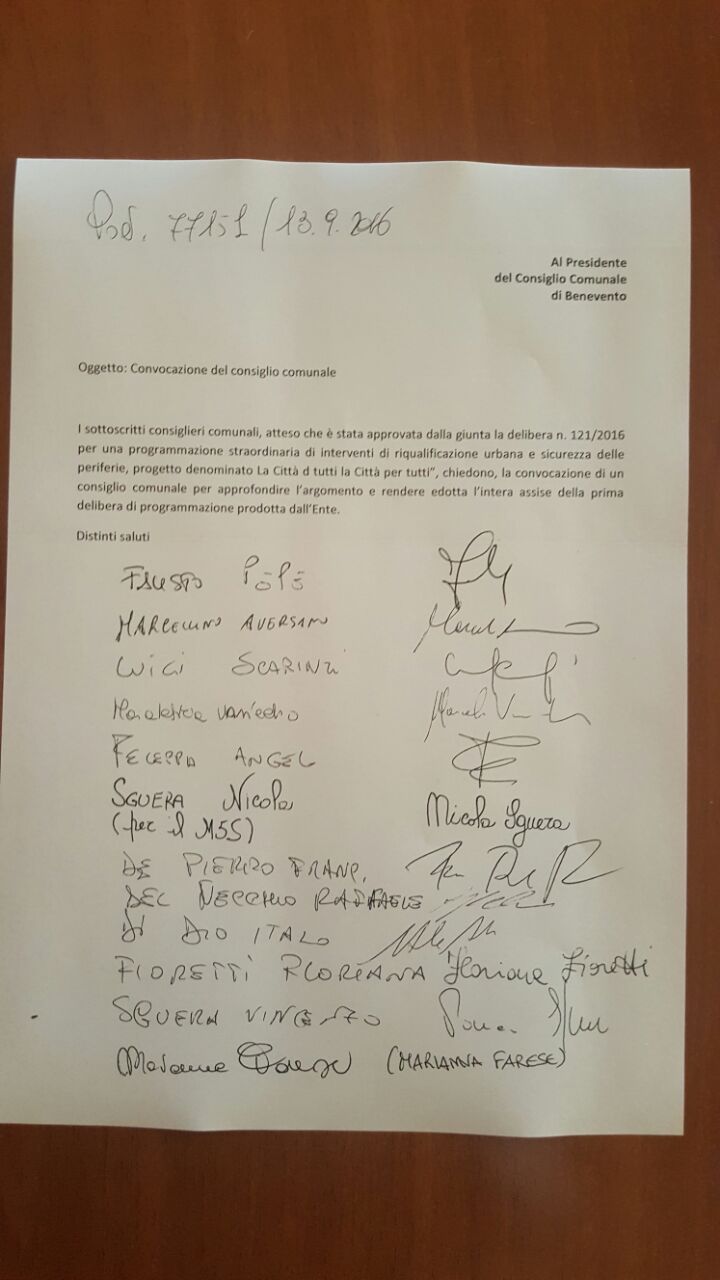 Prot. 77151 / 13.9.2016
Al Presidente
del Consiglio Comunale
di Benevento
Oggetto: Convocazione del consiglio comunale
I sottoscritti consiglieri comunali, atteso che è stata approvata dalla giunta la delibera n. 121/2016
per una programmazione straordinaria di interventi di riqualificazione urbana e sicurezza delle
periferie, progetto denominato La Città d tutti la Città per tutti”, chiedono, la convocazione di un
consiglio comunale per approfondire l’argomento e rendere edotta l’intera assise della prima
delibera di programmazione prodotta dall’Ente.
Distinti saluti
FAUSTO PEPE
MARCELLINO AVERSANO
LUIGI SCARINZI
FELEPPA ANGEL
SGUERA Nicola
(per il M5S) Nicola Sguera
DE PIERRO FRANC.
DEL VECCHIO RAFFAELE
DI DIO ITALO
FIORETTI FLORIANA Floriana Fioretti
SGUERA VINCENZO
(MARIANNA FARESE)